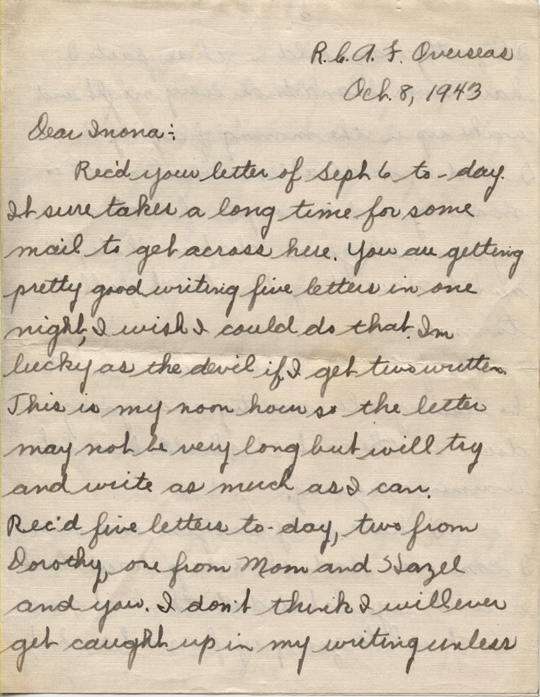 R.C.A.F. Overseas
Oct. 8, 1943
Dear Inona:-
Rec'd your letter of Sept 6 to-day.
It sure takes a long time for some
mail to get across here. You are getting
pretty good writing five letters in one
night, I wish I could do that. I'm
lucky as the devil if I get two written.
This is my noon hour so the letter
may not be very long but will try
and write as much as I can.
Rec'd five letters to-day, two from
Dorothy, one from Mom and Hazel
and you. I don't think I will ever
get caught up in my writing unless